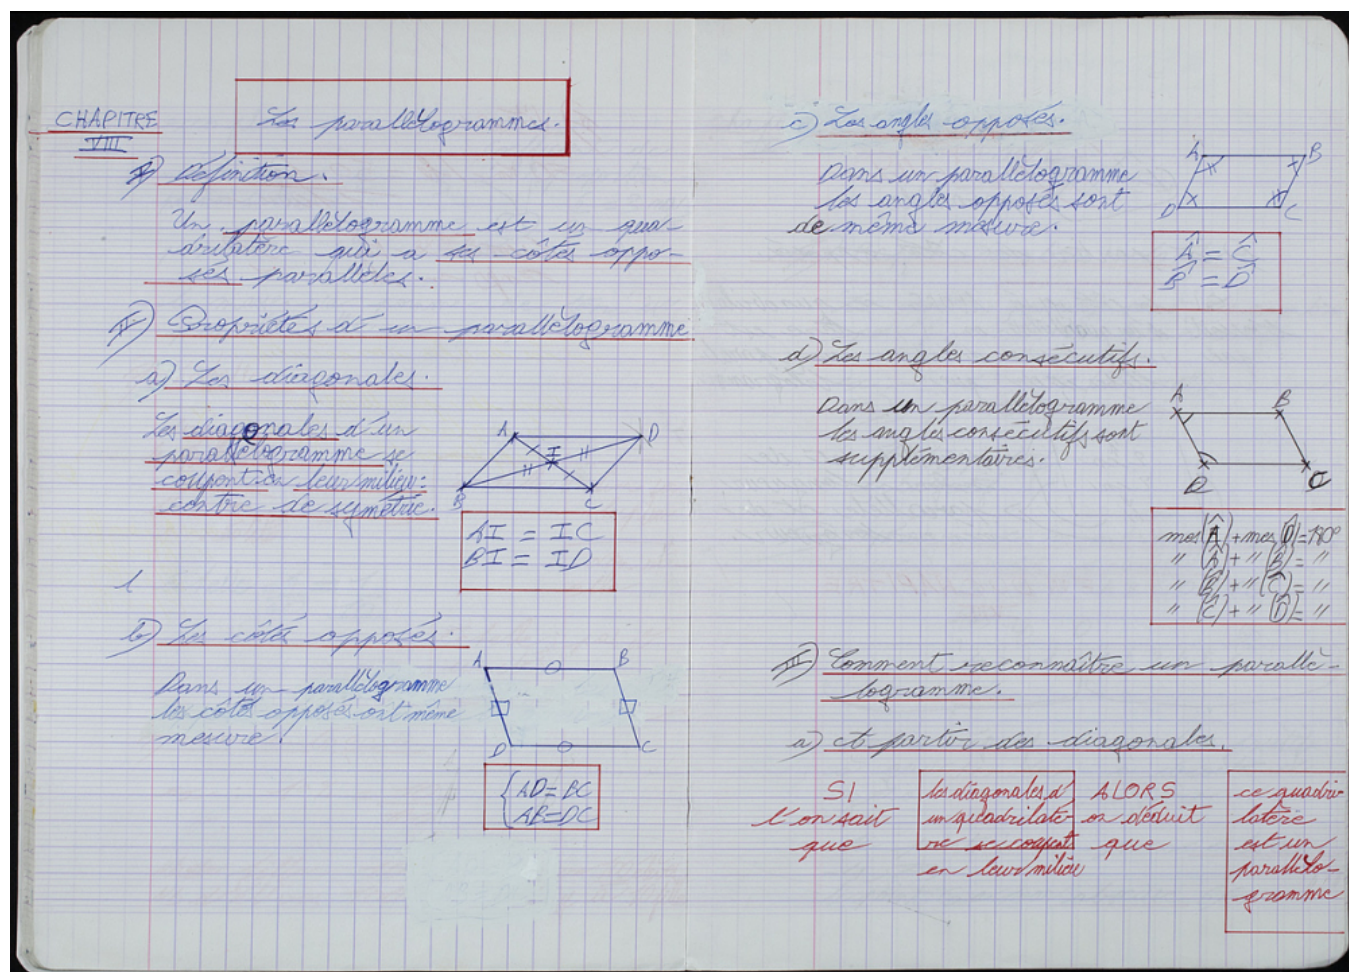 CHAPITRE
VIII
Les parallélogrammes.
I) Définition.
Un parallélogramme est un qua-
drilatère qui a ses côtés oppo-
sés parallèles.
II) Propriétés d'un parallélogramme
a) Les diagonales.
Les diagonales d'un
parallélogramme se
coupent en leur milieu:
centre de symétrie.
A
D
I
B
C
AI = IC
BI = ID
b) Les côtés opposés.
Dans un parallélogramme
les côtés opposés ont même
mesure.
A
B
D
C
AD=BC
AB=DC
c) Les angles opposés.
Dans un parallélogramme
les angles opposés sont
de même mesure.
A
B
D
C
Â = Ĉ
B̂ = D̂
d) Les angles consécutifs.
Dans un parallélogramme
les angles consécutifs sont
supplémentaires.
A
B
D
C
mes(Â)+mes(D̂)=180°
" (Â)+ " (B̂)= "
" (B̂)+ " (Ĉ)= "
" (Ĉ)+ " (D̂)= "
III) Comment reconnaître un parallé-
logramme.
a) A partir des diagonales.
SI
l'on sait
que
les diagonales d'
un quadrilatè-
re se coupent
en leur milieu
ALORS
on déduit
que
ce quadri-
latère
est un
parallélo-
gramme